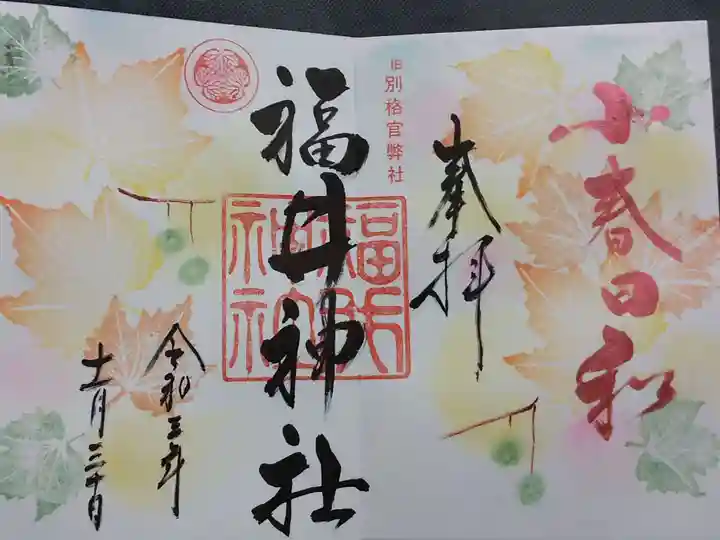 小春日和
奉拝
旧別格官弊社
福井神社
福井神社
令和三年
十一月二十日